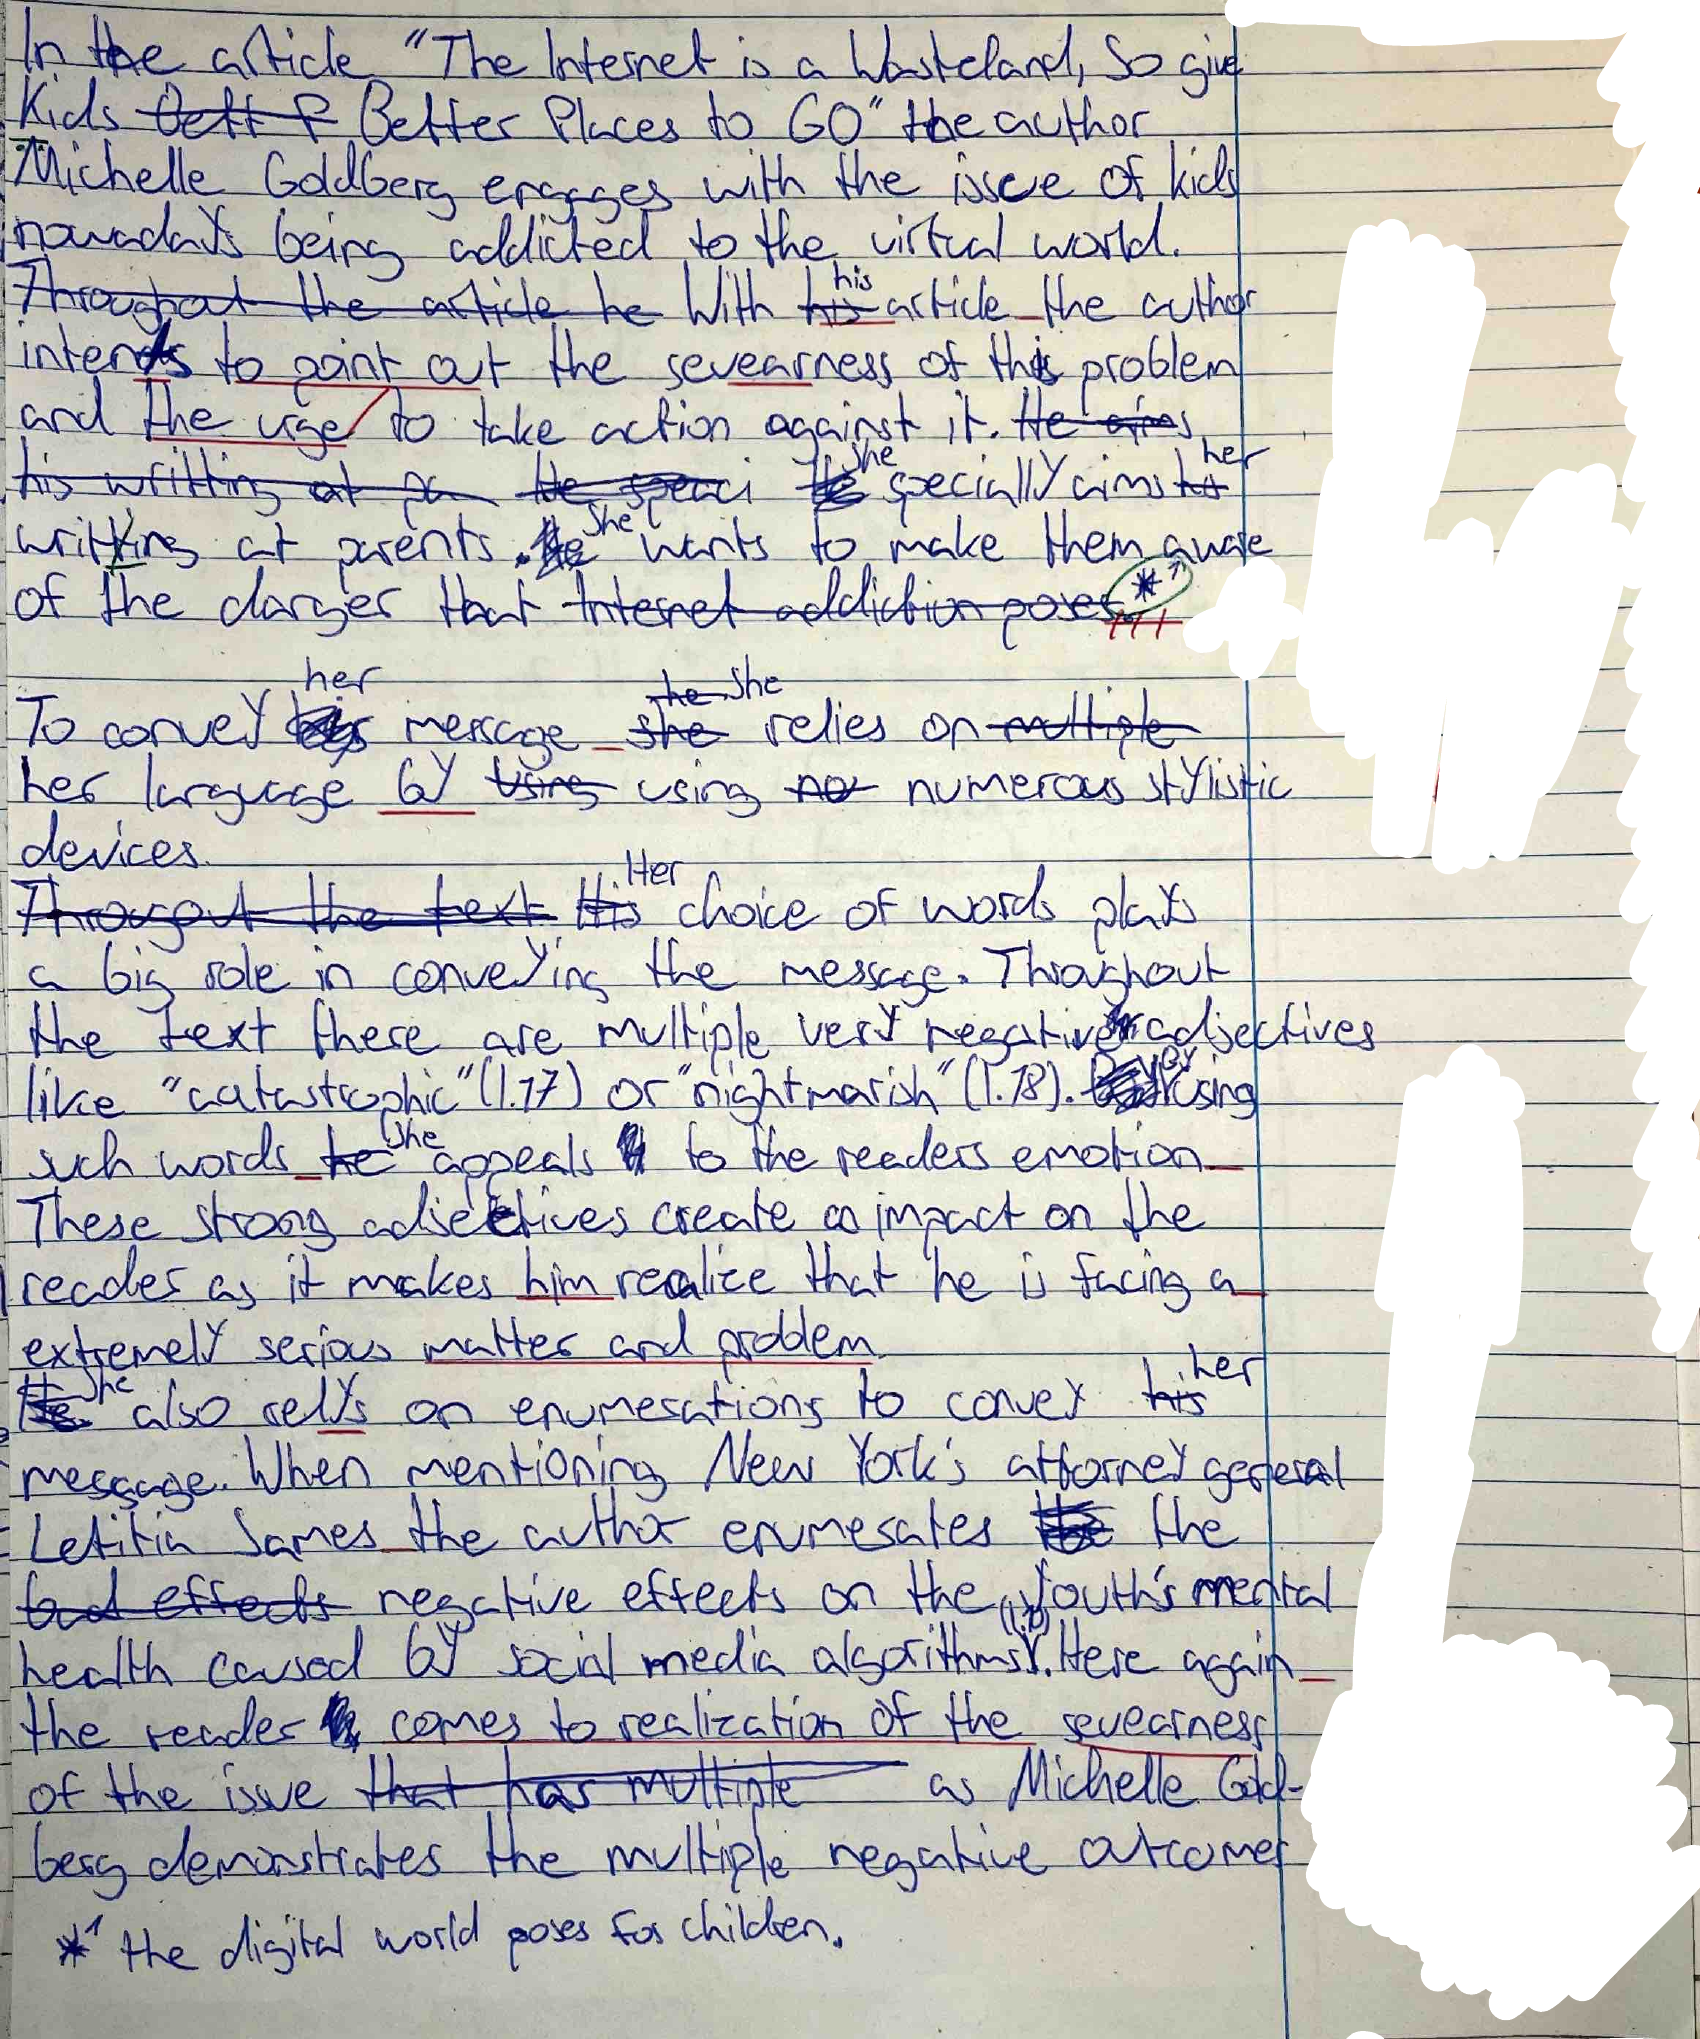 In the article "The Internet is a Wasteland, So give
Kids Bett P Better Places to GO" the author
Michelle Goldberg engages with the issue of kids
nowadays being addicted to the virtual world.
Throughout the article he With his his article the author
intends to point out the severarness of this problem
and the urge to take action against it. He aims
his writting at pa He speaci She specially aims his her
writting at parents. He She wants to make them aware
of the danger that Internet addiction poses *1
To convey her message she he She relies on multiple
her language by using using no numerous stylistic
devices.
Througout the text His Her choice of words plays
a big role in conveying the message. Throughout
the text there are multiple very negative adjectives
like "catastrophic" (l.17) or "nightmarish" (l.18). By using
such words he she appeals to the readers emotion
These strong adjectives create an impact on the
reader as it makes him realize that he is facing a
extremely serious matter and problem.
He She also relys on enumerations to convey his her
message. When mentioning New York's attorney general
Letitia James the author enumerates the the
bad effects negative effects on the youth's mental
health caused by social media algorithms. Here again
the reader comes to realization of the severarness
of the issue that has multiple as Michelle Gold-
berg demonstrates the multiple negative outcomes
*1 the digital world poses for children.